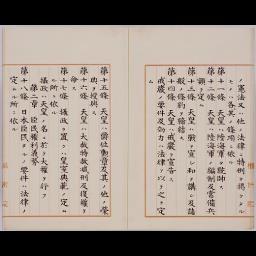 ノ憲法又ハ他ノ法律ニ特例ヲ掲クルモノハ各其ノ條項ニ依ル
第十一條 天皇ハ陸海軍ヲ統帥ス
第十二條 天皇ハ陸海軍ノ編制及常備兵
額ヲ定ム
第十三條 天皇ハ戰ヲ宣シ和ヲ講シ及諸
般ノ條約ヲ締結ス
第十四條 天皇ハ戒嚴ヲ宣告ス
戒嚴ノ要件及効力ハ法律ヲ以テ之ヲ定
ム
第十五條 天皇ハ爵位勳章及其ノ他ノ榮
典ヲ授與ス
第十六條 天皇ハ大赦特赦減刑及復權ヲ
命ス
第十七條 攝政ヲ置クハ皇室典範ノ定ム
ル所ニ依ル
攝政ハ天皇ノ名ニ於テ大權ヲ行フ
第二章 臣民權利義務
第十八條 日本臣民タルノ要件ハ法律ノ
定ムル所ニ依ル